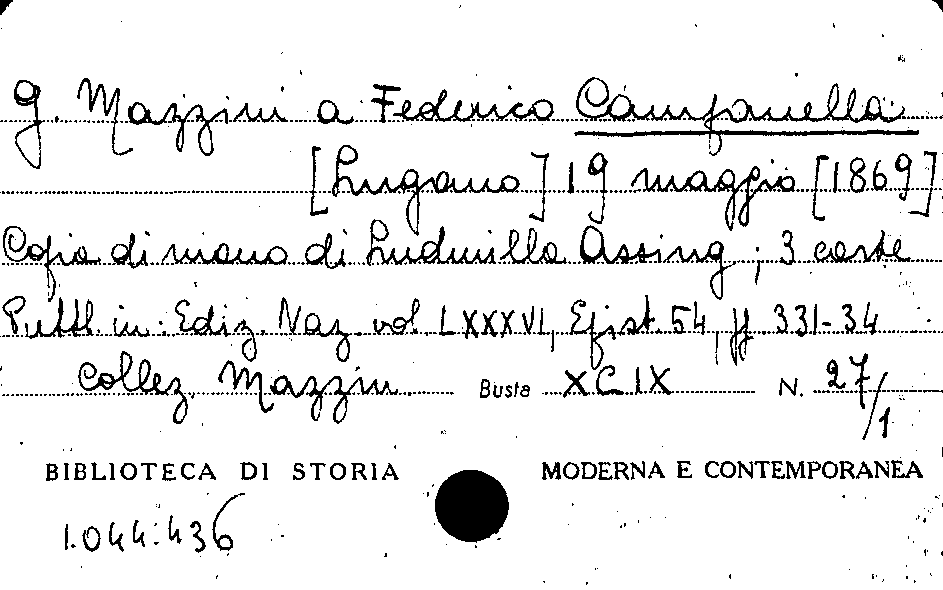 G. Mazzini a Federico Campanella
[Lugano] 19 maggio [1869]
Copia di mano di Ludmilla Assing; 3 carte
Pubbl. in: Ediz. Naz. vol LXXXVI, Epist. 54, pp 331-34
Collez Mazzini Busta XCIX N. 27/1
BIBLIOTECA DI STORIA MODERNA E CONTEMPORANEA
1.044.436